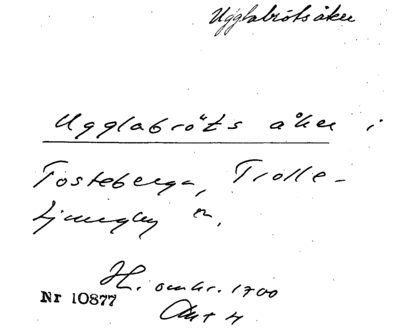 Ugglabröts åker
Ugglabröts åker i
Tosteberga, Trolle-
Ljungby sn.
H. omkr. 1700
Nr 10877
Akt 4